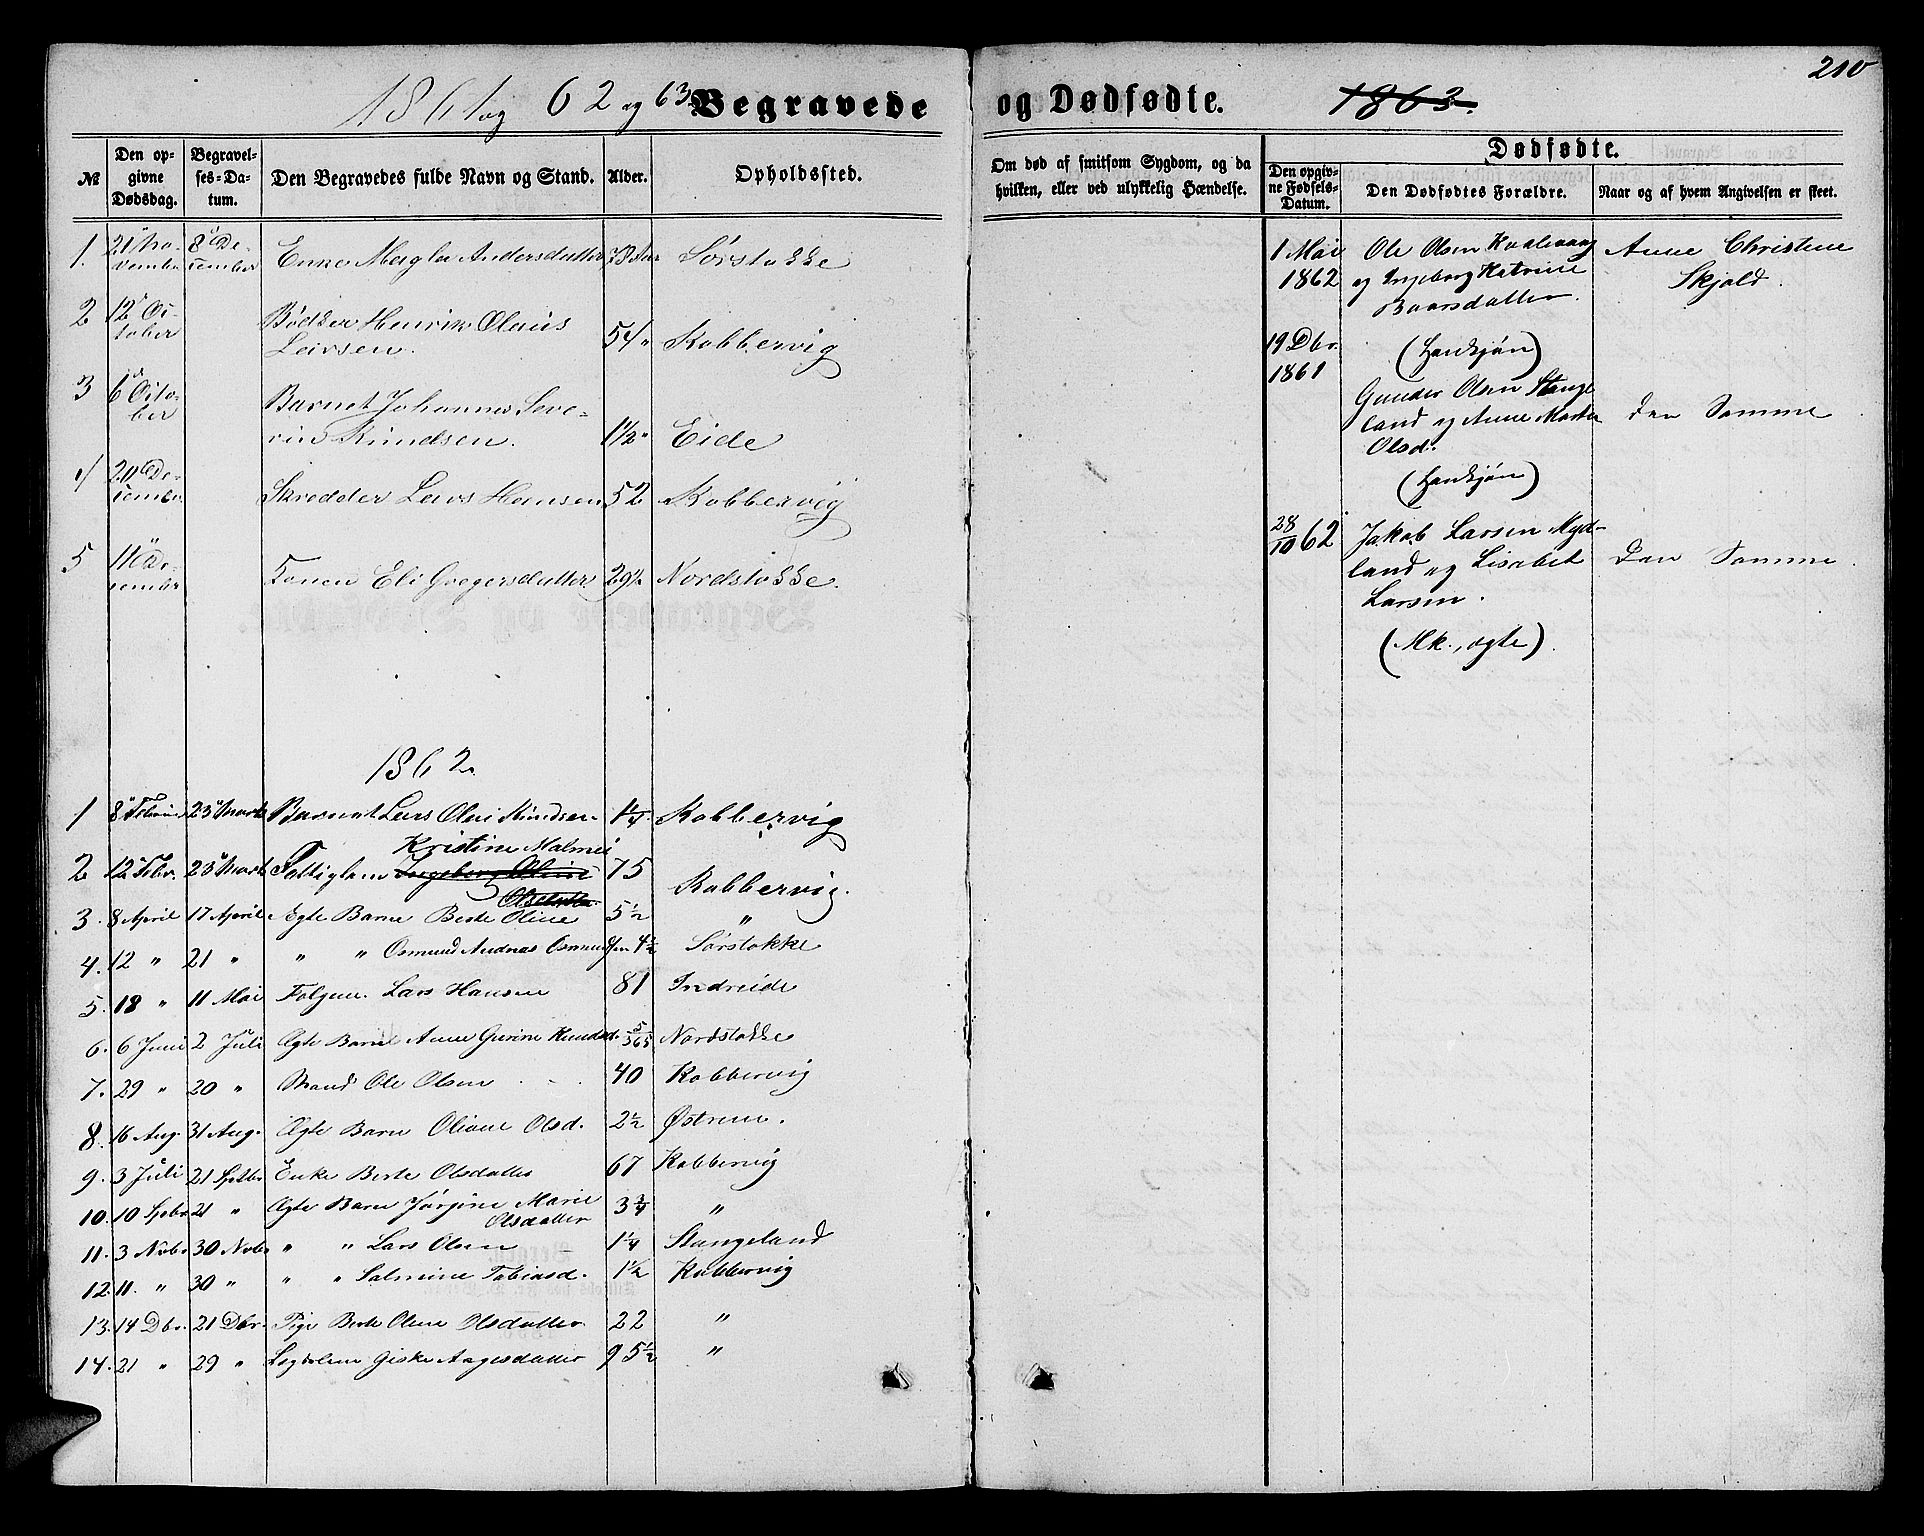 210
1861 og 62 og 63 Begravede og Dødfødte. 1863.
№
Den opgivne Dødsdag.
Begravelses-Datum.
Den Begravedes fulde Navn og Stand.
Alder.
Opholdssted.
Om død af smitsom Sygdom, og da hvilken, eller ved ulykkelig Hændelse.
Dødfødte.
Den opgivne Fødsels-Datum.
Den Dødfødtes Forældre.
Naar og af hvem Angivelsen er skeet.
1. 21 November 8 December Enke Andersdatter Sørstokke
2 12 October Bødker Henrik Olaus
Larsen. 54 " Kobbervig
3 6 October Barnet Johannes Seve-
rin Knudsen. 1½ " Eide
4 December Skredder Lars Hansen 52 Kobbervig
5 Eli Gregersdatter 29½ Nordstokke.
1862
1 8 Februar 23 Marts Barnet Lars Olai Knudsen 1¼ Kobbervig
Kristine Malmei
2 12 Febr. 23 Marts Fattiglem Ingeborg Oline 75 Kobbervig.
Olsdatter
3. 8 April 17 April Ægte Barn Berte Oline 5½ "
4. 12 " 21 " " " Osmund Andreas Osmundsen 4½ Sørstokke
5. 18 " 11 Mai Lars Hansen 81 Indreide
6. 6 Juni 2 Juli Ægte Barn Anne Gurine Knudsd. 5/365 Nordstokke
7. 29 " 20 " Mand Ole Olsen 40 Kobbervig
8. 16 Aug. 31 Aug. Ægte Barn Oliane Olsd. 2½ Østrem.
9. 3 Juli 21 Septbr Enke Berte Olsdatter 67 Kobbervig
10. 10 Spbr 21 " Ægte Barn Jørgine Marie 3¾ "
Olsdatter
11. 3 Nvbr 30 Nvbr " " Lars Olsen 1¼ Stangeland
12. 11. " 30 " " " Salmine Tobiasd. 1½ Kobbervig
13. 14 Dbr. 21 Dbr. Pige Berte Oline Olsdatter 22 "
14. 21 " 29 " Giske Aagesdatter 95½ "
1 Mai Ole Olsen Anne Christine
1862 og Ingeborg Katrine Skjold.
Baarsdatter.
19 Dbr. (Hankjøn)
1861 Gunder Olsen Stange
land og Anne Marta den Samme
Olsd.
(Hankjøn)
28/10 62 Jakob Larsen Myd-
land og Lisabet Den Samme
Larsen.
(Mk., ægte).